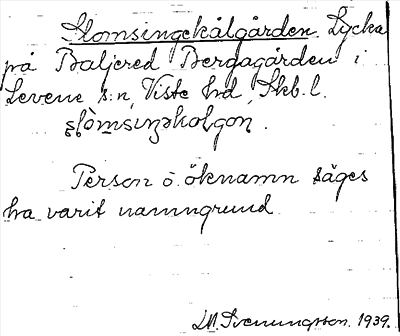 Slomsingekålgården. Lycka
på Baljered Bergagården i
Levene s:n, Viste hd, Skb. l.
Person o. öknamn säges
ha varit namngrund.
LM. Svenungsson. 1939.